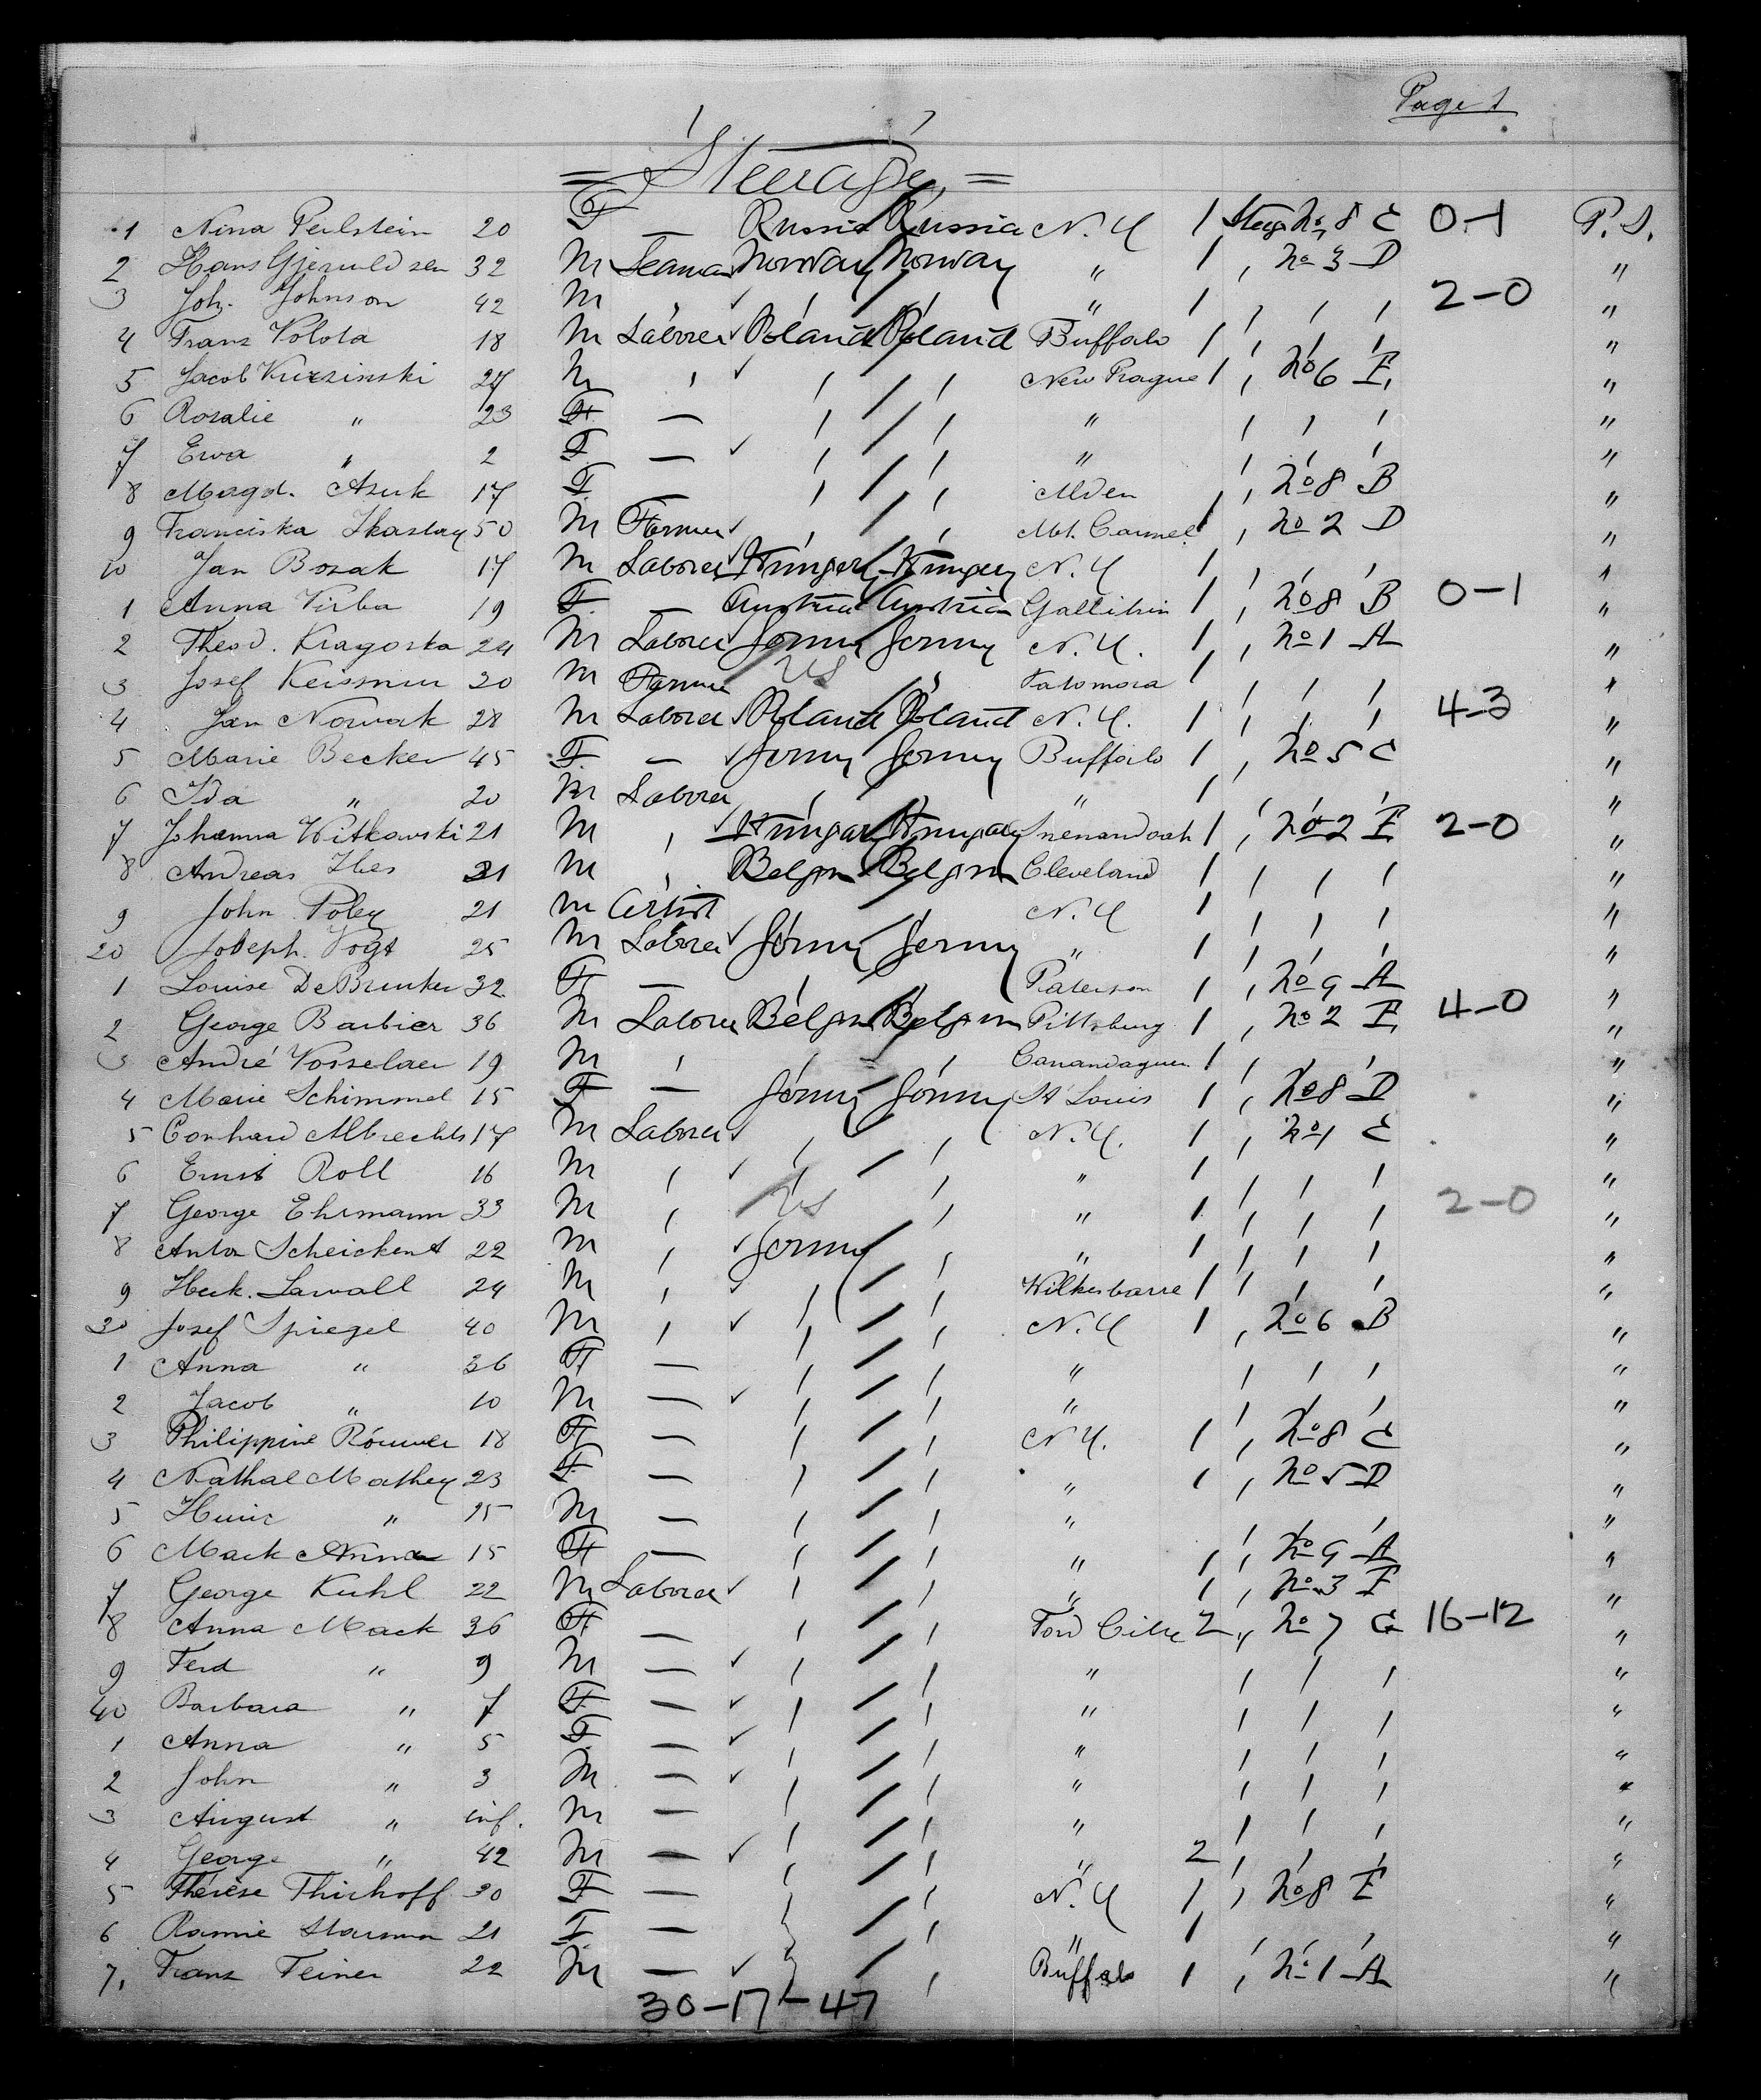 Page 1
= Steerage, =
1 Nina Peilstein 20 F — Russia Russia N.Y 1 Steeg No 8 C 0-1 P.S.
2 Hans Gjeruldsen 32 M Seaman Norway Norway " 1 , No 3 D "
3 Joh. Johnson 42 M " 1 2-0 "
4 Franz Volota 18 M Laborer Poland Poland Buffalo 1 "
5 Jacob 27 M New Prague 1 , No 6 E "
6 Rosalie " 23 F — " "
7 Ewa " 2 F — " "
8 Magd. Azuk 17 F — Alden 1 , No 8 B "
9 Franciska 50 M Farmer Mt. Carmel 1 , No 2 D "
10 Jan Bozak 17 M Laborer Hungary Hungary N.Y 1 "
1 Anna Virba 19 F. — Austria Austria Gallitzin 1 , No 8 B 0-1 "
2 Theod. Kragoska 24 M Laborer Germy Germy N.Y. 1 , No 1 A "
3 Josef 30 M Farmer US 1 "
4 Jan Nowak 28 M Laborer Poland Poland N.Y. 1 4-3 "
5 Marie Becker 45 F. — Germy Germy Buffalo 1 No 5 C "
6 Ida " 20 M Laborer " 1 "
7 Johanna Witkowski 21 M Hungary Hungary Shenandoah 1 , No 2 E 2-0 "
8 Andreas 21 M Belgm Belgm Cleveland 1 "
9 John Poley 21 M Artist N.Y 1 "
20 Joseph. Vogt 25 M Laborer Germy Germy " 1 "
1 Louise De Brunker 32 F — Paterson 1 , No 9 A "
2 George Barbier 36 M Laborer Belgm Belgm Pittsburg 1 , No 2 E 4-0 "
3 André Vosselaer 19 M 1 "
4 Marie Schimmel 15 F — Germy Germy St Louis 1 , No 8 D "
5 Conhard Albrechts 17 M Laborer N.Y. 1 , No 1 C "
6 Ernst Roll 16 M " 1 "
7 George Ehrmann 33 M US " 1 2-0 "
8 Anton Scheickent 22 M Germy " 1 "
9 Heck. Lawall 24 M Wilkesbarre 1 "
30 Josef Spiegel 40 M N.Y 1 , No 6 B "
1 Anna " 36 F — " "
2 Jacob " 10 M — " "
3 Philippine 18 F — N.Y. 1 , No 8 C "
4 Nathal Mathey 23 F — " 1 , No 5 D "
5 " 25 M — " "
6 Mack Anna 15 F — " 1 , No 9 A "
7 George Kuhl 22 M Laborer " 1 , No 3 E "
8 Anna Mack 36 F — Ford City 2 " No 7 C 16-12 "
9 Ferd " 9 M — " "
40 Barbara " 7 F — " "
1 Anna " 5 F — " "
2 John " 3 M — " "
3 August " inf. M — " "
4 George " 42 M — " 2 "
5 Therese Thirhoff 30 F — N.Y 1 , No 8 E "
6 21 F — " 1 "
7. Franz Feiner 22 M — Buffalo 1 , No 1 A "
30-17-47